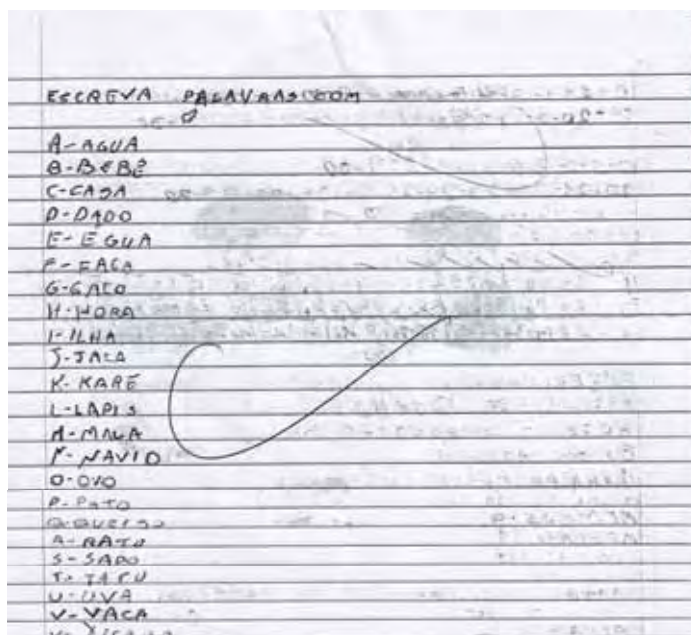 ESCREVA PALAVRAS COM
A- AGUA
B- BEBÊ
C- CASA
D- DADO
E- EGUA
F- FACA
G- GATO
H- HORA
I- ILHA
J- JACA
K- KARÉ
L- LAPIS
M- MALA
N- NAVIO
O- OVO
P- PATO
Q- QUEIJO
R- RATO
S- SAPO
T- TATU
U- UVA
V- VACA